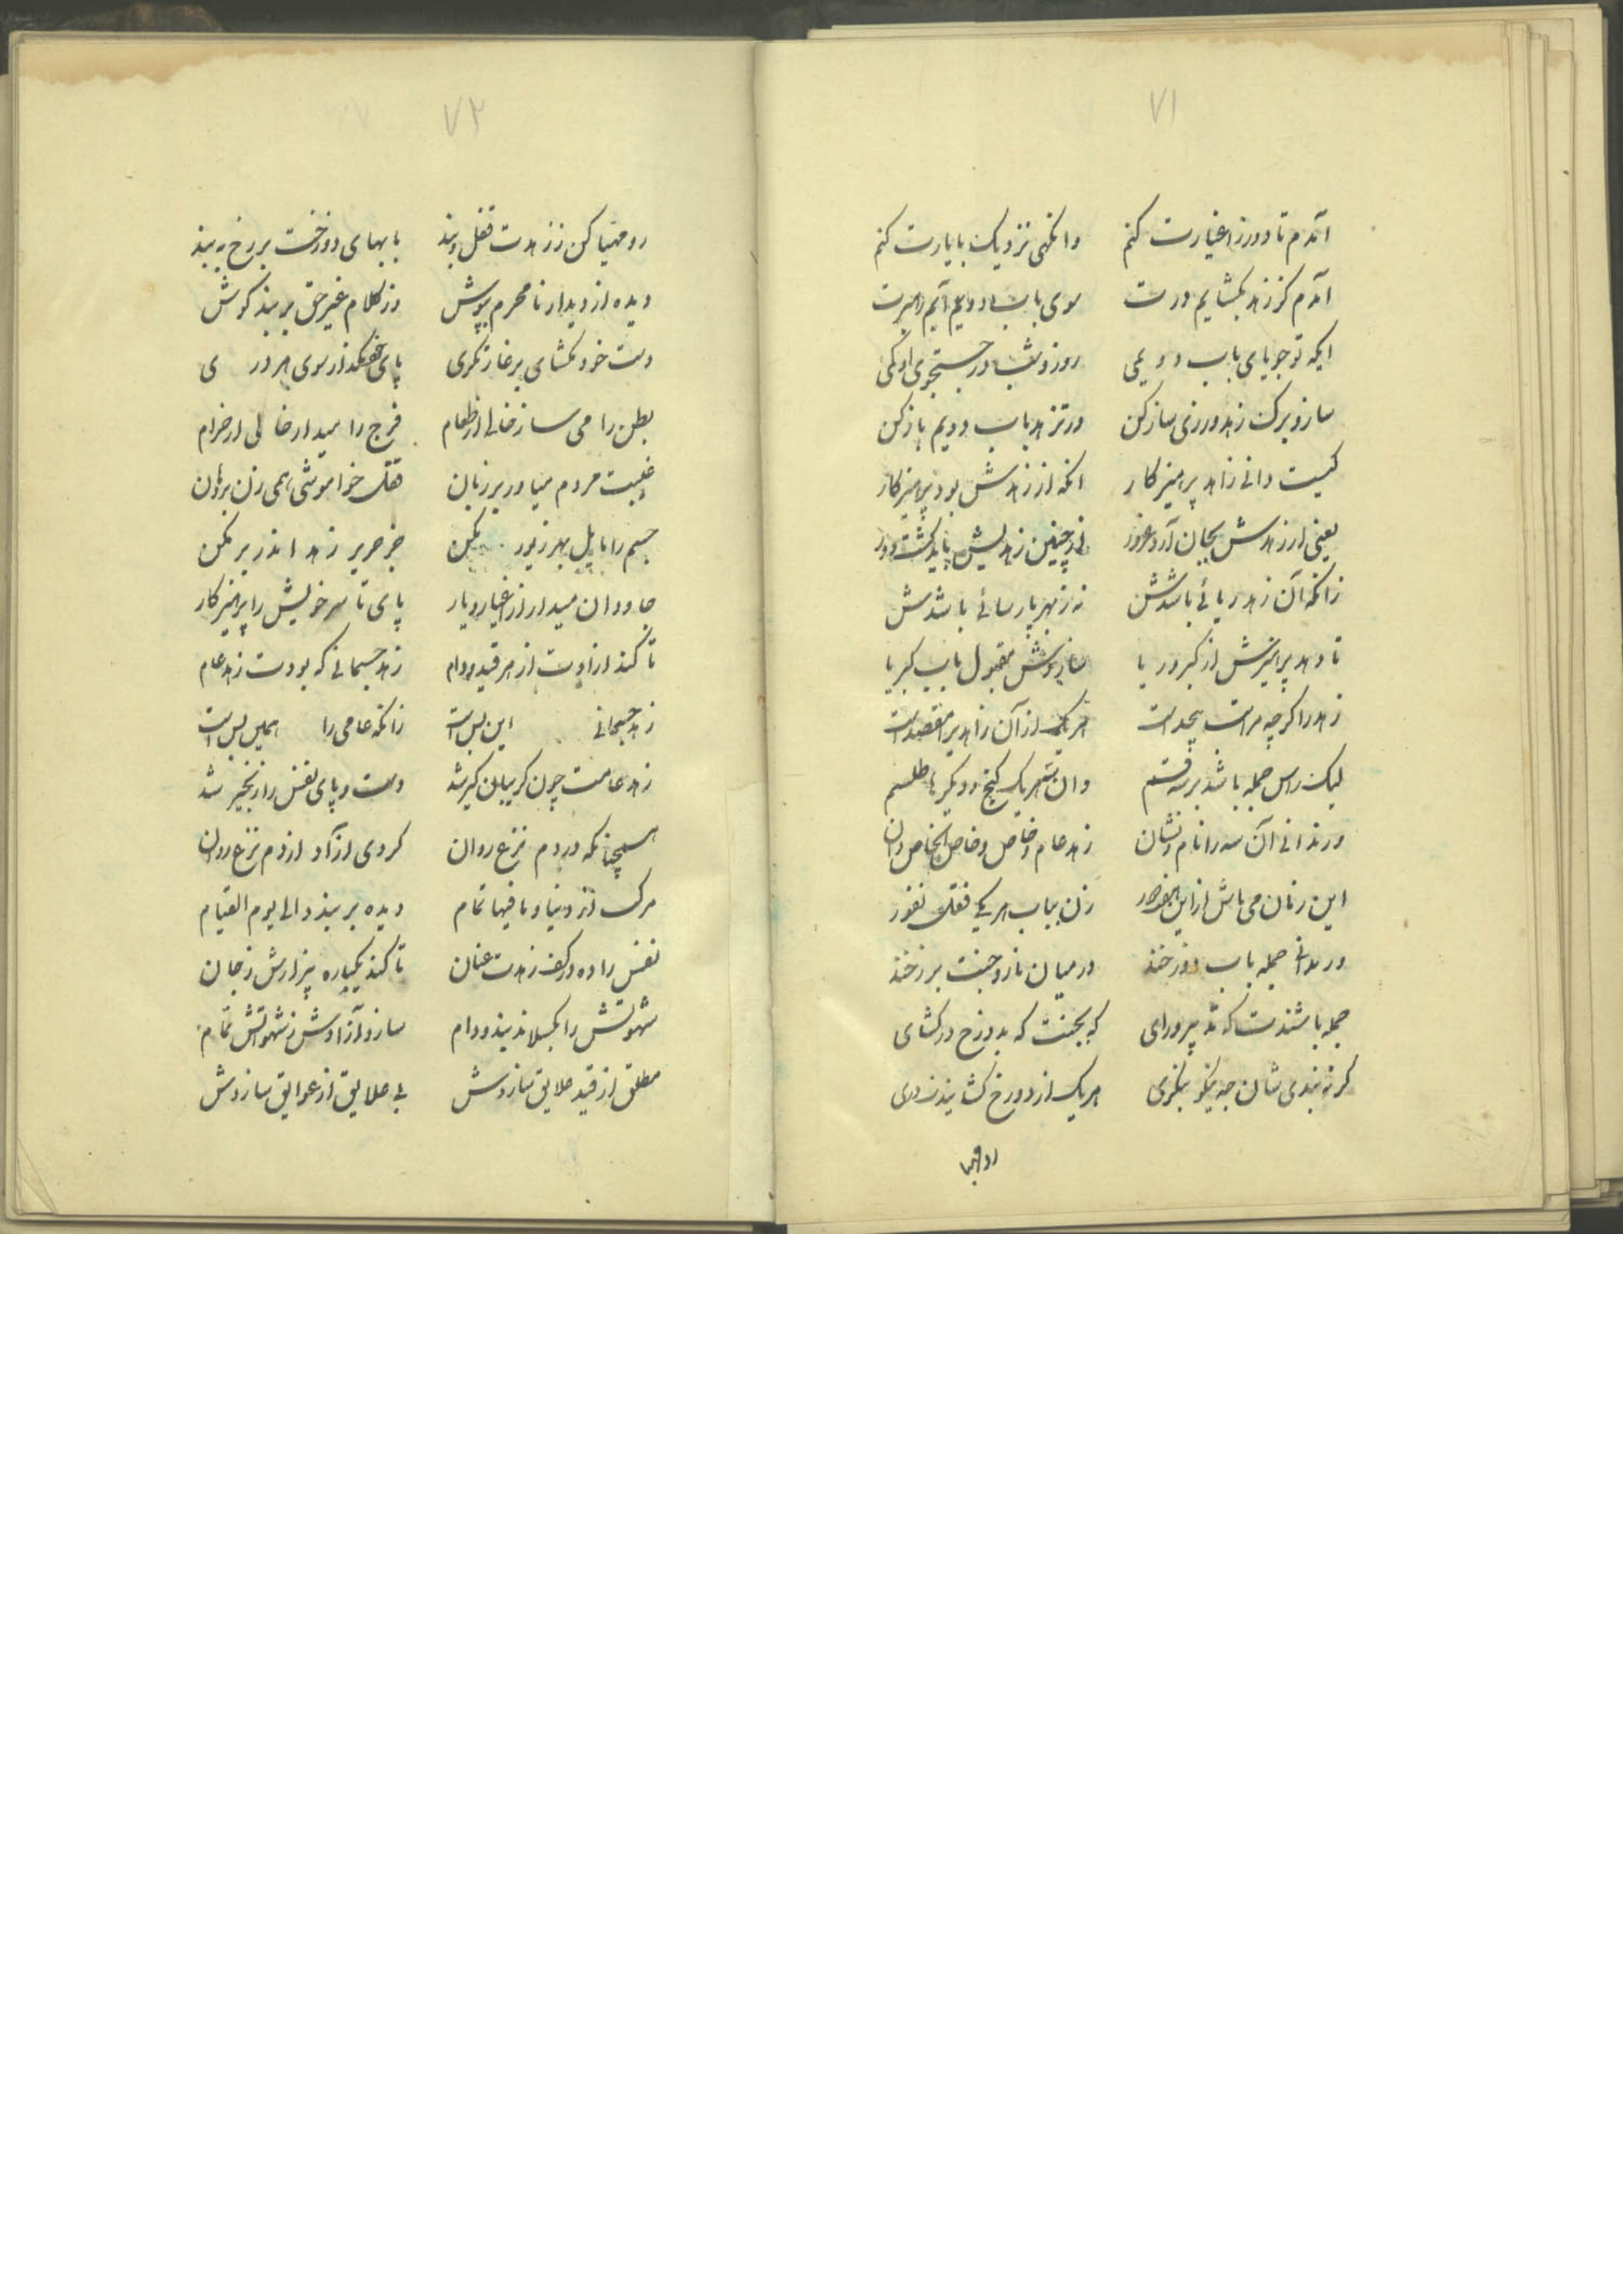 ۷۱
آمدم تا دور ز اغیارت کنم وانگهی نزدیک با یارت کنم
آمدم کز زهد بگشایم درت سوی باب دویم آیم رهبرت
ایکه تو جویای باب دویمی روز و شب در جستجوی او
ساز و برک زهد ورزی ساز کن ور تزهد باب دویم باز کن
کیست دانی زاهد پرهیزکار انکه از زهدش بود پرهیزکار
یعنی ار زهدش بجان آرد غرور از چنین زهدیش باید کشت دور
زانکه آن زهد ریائی باشدش نه ز بهر پارسائی باشدش
تا دهد پرهیزش از کبر و ریا سازدش مقبول باب کبریا
زهد را کرچه مراتب بیحدست هریک از آن زاهدیرا مقصدست
لیک راس جمله باشد بر سه قسم وان سه هریک کنج و دیگرها طلسم
ور ندانی آن سه را نام و نشان زهد عام و خاص و خاص الخاص دان
این زمان می باش از این زن بباب هر یکی قفل نفور
ور بدانی جمله باب دوزخند در میان نار و جنت برزخند
جمله باشندت که تدبیر و رای که بجنت که بدوزخ درکشای
کر نه بندی شان چه نیکو بنگری هریک از دوزخ کشایندت دری
رو مهیا
۷۲
رو مهیا کن ز زهدت قفل و بند بابهای دوزخت بر رخ به بند
دیده از دیدار نامحرم بپوش وز کلام غیر حق بر بند کوش
دست خود مکشای بر غارتکری پای مکذار سوی هر دری
بطن را می ساز خالی از طعام فرج را میدار خالی از حرام
غیبت مردم میاور بر زبان قفل خواموشی همی زن بر دهان
جسم را مایل بهر زیور مکن جز حریر زهد اندر بر مکن
جاودان میدار از اغیار و یار پای تا سر خویش را پرهیزکار
تا کند ازادت از هر قید و دام زهد جسمانی که بودت زهد عام
زهد جسمانی این بس است زانکه عامی را همین بس است
زهد عامت چون کریبان کیر شد دست و پای نفس را زنجیر شد
همچنانکه در دم نزع روان کردی ازآد از دم نزع روان
مرک از دنیا و مافیها تمام دیده بر بندد الی یوم القیام
نفس را ده در کف زهدت عنان تا کند یکباره بیزارش ز جان
شهوتش را بکسلاند بند و دام سازد آزادش ز شهوتش تمام
مطلق از قید علایق سازدش بی علایق از عوایق سازدش